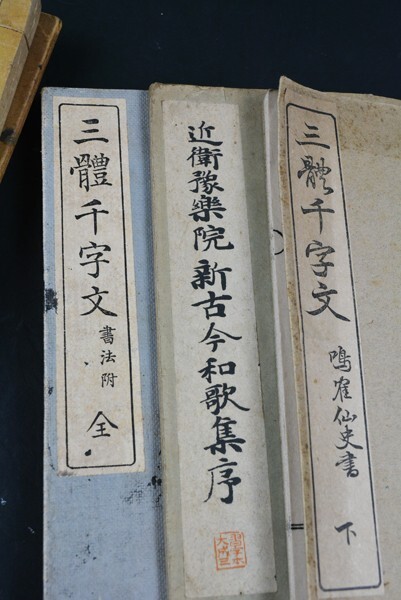 三體千字文 書法附 全
近衛豫樂院新古今和歌集序
三體千字文 鳴隺仙史書 下